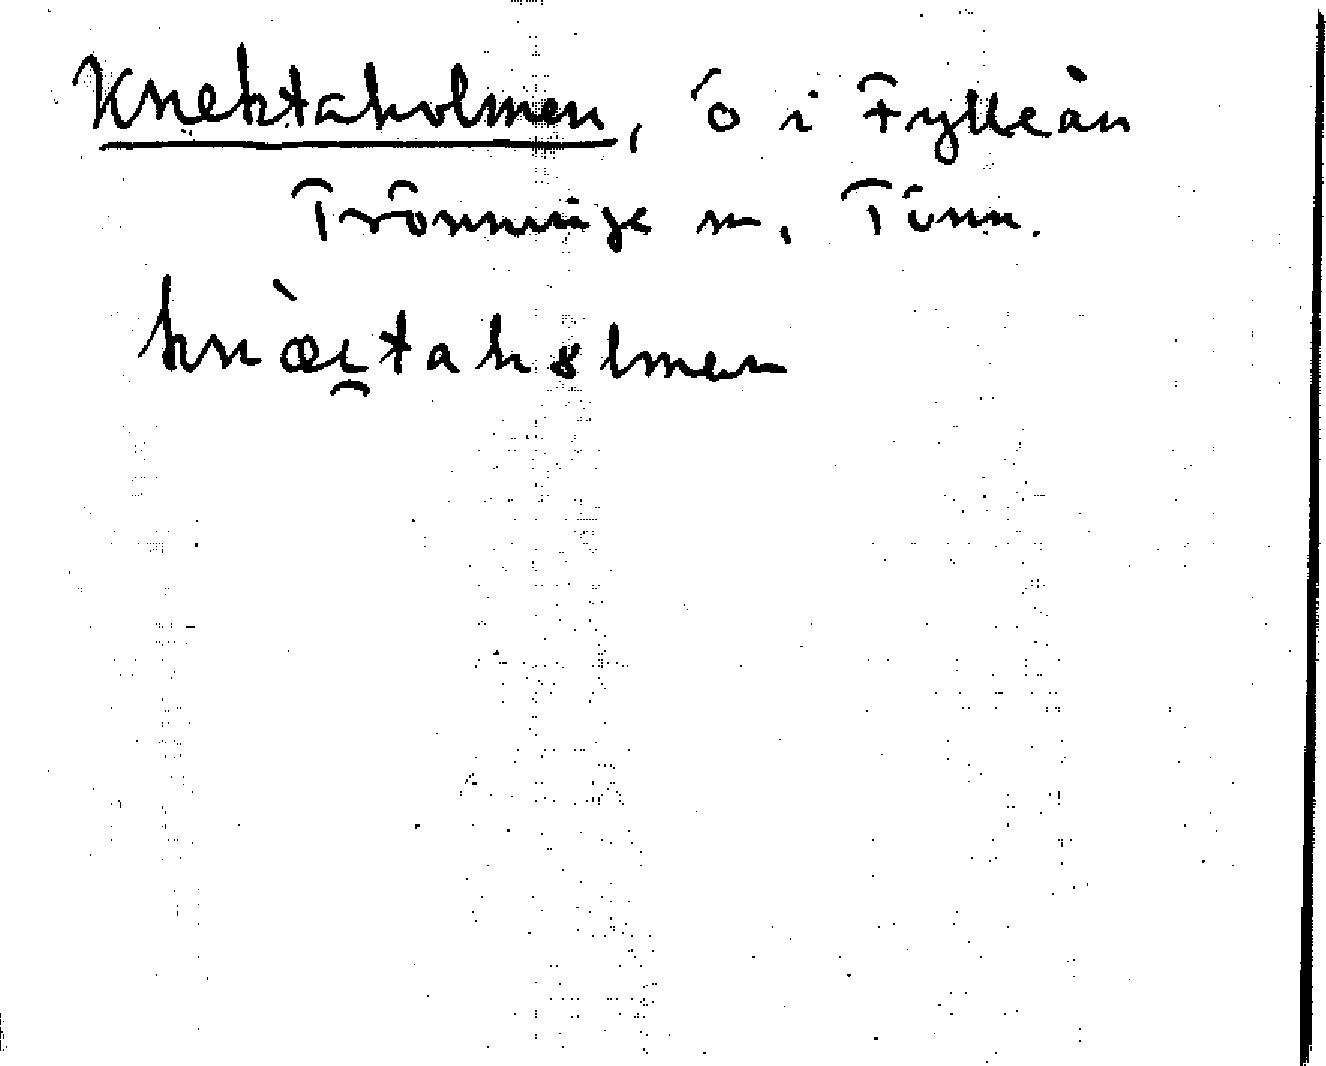 Knektaholmen, ö i Fylleån
Trönninge sn, Tönn.
knæ̀i̯taholmen